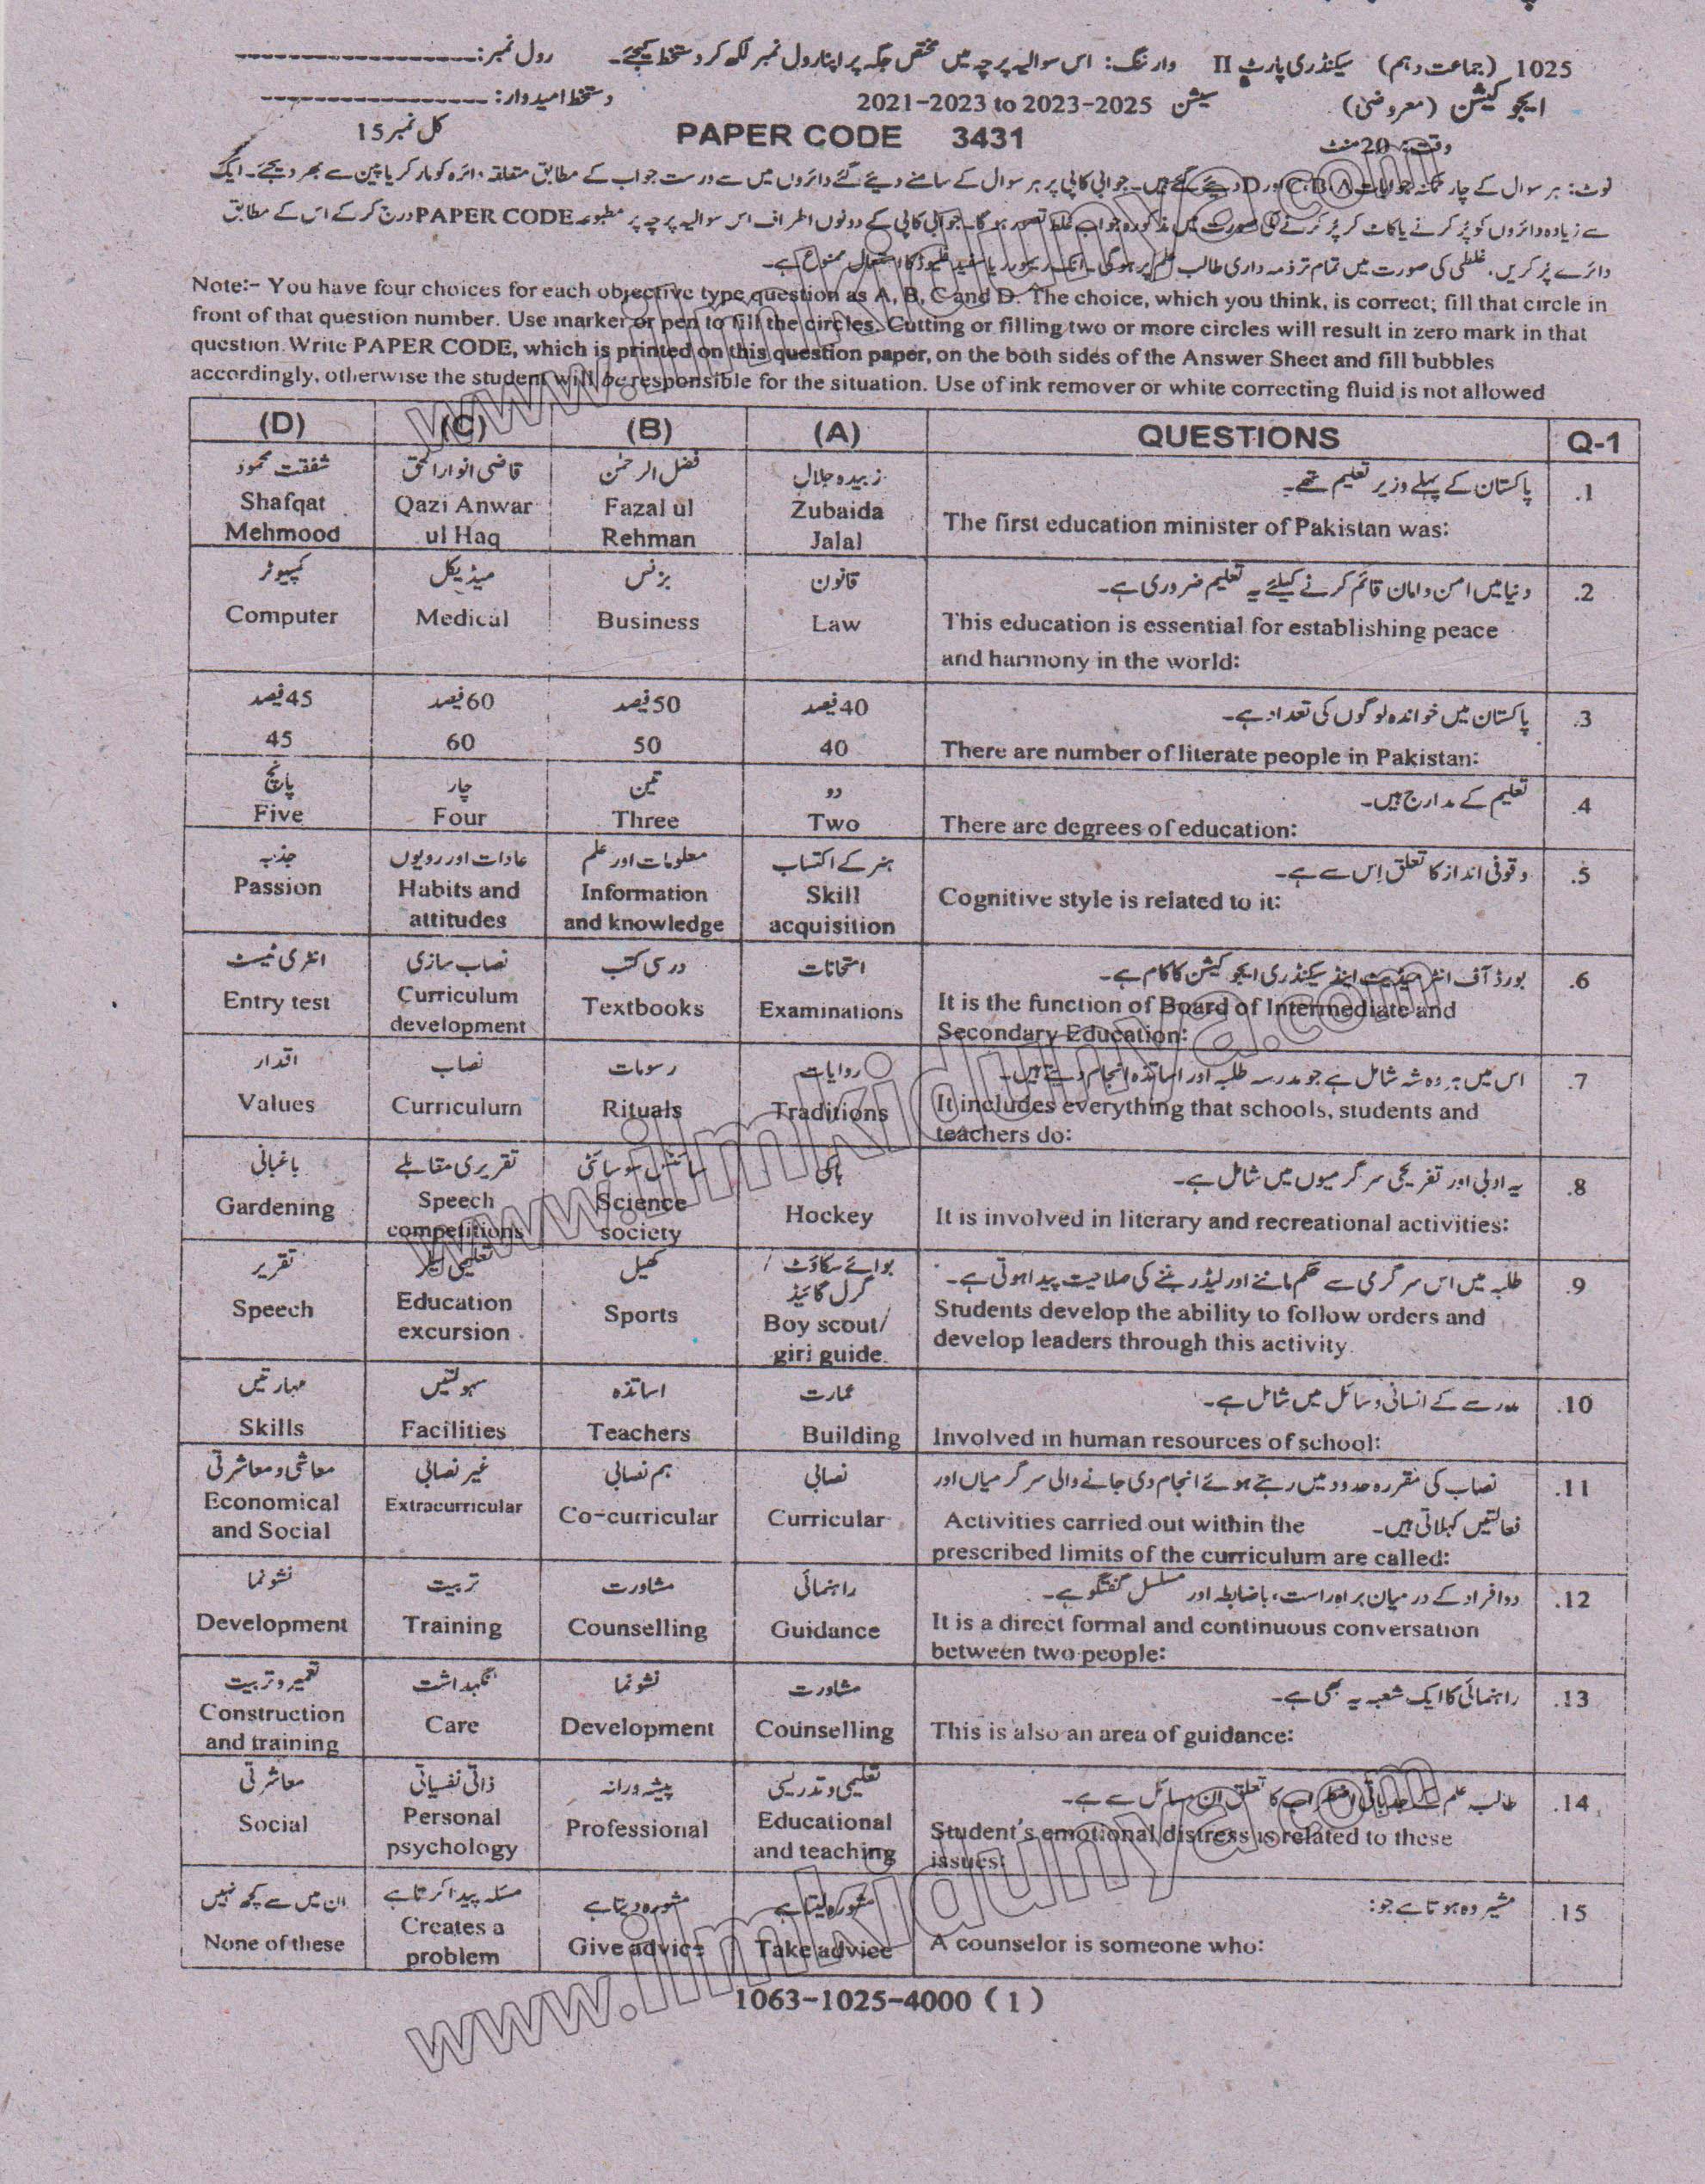 1025 (جماعت دہم) سیکنڈری پارٹ II وارننگ: اس سوالیہ پرچہ میں مختص جگہ پر اپنا رول نمبر لکھ کر دستخط کیجئے۔ رول نمبر:
ایجوکیشن (معروضی) سیشن 2021-2023 to 2023-2025 دستخط امیدوار:
وقت: 20 منٹ PAPER CODE 3431 کل نمبر 15
نوٹ: ہر سوال کے چار ممکنہ جوابات A، B، C اور D دیئے گئے ہیں۔ جوابی کاپی پر ہر سوال کے سامنے دیئے گئے دائروں میں سے درست جواب کے مطابق متعلقہ دائرہ کو مارکر یا پین سے بھر دیجئے۔ ایک
سے زیادہ دائروں کو پُر کرنے یا کاٹ کر پُر کرنے کی صورت میں مذکورہ جواب غلط تصور ہو گا۔ جوابی کاپی کے دونوں اطراف اس سوالیہ پرچہ پر مطبوعہ PAPER CODE درج کر کے اس کے مطابق
دائرے پُر کریں، غلطی کی صورت میں تمام تر ذمہ داری طالب علم پر ہوگی۔ انک ریموور یا سفید فلیوڈ کا استعمال ممنوع ہے۔
Note:- You have four choices for each objective type question as A, B, C and D. The choice, which you think, is correct; fill that circle in
front of that question number. Use marker or pen to fill the circles. Cutting or filling two or more circles will result in zero mark in that
question. Write PAPER CODE, which is printed on this question paper, on the both sides of the Answer Sheet and fill bubbles
accordingly, otherwise the student will be responsible for the situation. Use of ink remover or white correcting fluid is not allowed
(D) (C) (B) (A) QUESTIONS Q-1
شفقت محمود قاضی انوارالحق فضل الرحمٰن زبیدہ جلال پاکستان کے پہلے وزیر تعلیم تھے۔ .1
Shafqat Qazi Anwar Fazal ul Zubaida The first education minister of Pakistan was:
Mehmood ul Haq Rehman Jalal
کمپیوٹر میڈیکل بزنس قانون دنیا میں امن و امان قائم کرنے کیلئے یہ تعلیم ضروری ہے۔ .2
Computer Medical Business Law This education is essential for establishing peace
and harmony in the world:
45 فیصد 60 فیصد 50 فیصد 40 فیصد پاکستان میں خواندہ لوگوں کی تعداد ہے۔ .3
45 60 50 40 There are number of literate people in Pakistan:
پانچ چار تین دو تعلیم کے مدارج ہیں۔ .4
Five Four Three Two There are degrees of education:
جذبہ عادات اور رویوں معلومات اور علم ہنر کے اکتساب وقوفی انداز کا تعلق اِس سے ہے۔ .5
Passion Habits and Information Skill Cognitive style is related to it:
attitudes and knowledge acquisition
انٹری ٹیسٹ نصاب سازی درسی کتب امتحانات بورڈ آف انٹرمیڈیٹ اینڈ سیکنڈری ایجوکیشن کا کام ہے۔ .6
Entry test Curriculum Textbooks Examinations It is the function of Board of Intermediate and
development Secondary Education:
اقدار نصاب رسومات روایات اس میں ہر وہ شہ شامل ہے جو مدرسہ طلبہ اور اساتذہ انجام دیتے ہیں۔ .7
Values Curriculum Rituals Traditions It includes everything that schools, students and
teachers do:
باغبانی تقریری مقابلے سائنس سوسائٹی ہاکی یہ ادبی اور تفریحی سرگرمیوں میں شامل ہے۔ .8
Gardening Speech Science Hockey It is involved in literary and recreational activities:
competitions society
تقریر تعلیمی سیر کھیل بوائے سکاؤٹ / طلبہ میں اس سرگرمی سے حکم ماننے اور لیڈر بننے کی صلاحیت پیدا ہوتی ہے۔ .9
گرل گائیڈ
Speech Education Sports Boy scout/ Students develop the ability to follow orders and
excursion giri guide develop leaders through this activity.
مہارتیں سہولتیں اساتذہ عمارت مدرسے کے انسانی وسائل میں شامل ہے۔ .10
Skills Facilities Teachers Building Involved in human resources of school:
معاشی و معاشرتی غیر نصابی ہم نصابی نصابی نصاب کی مقررہ حدود میں رہتے ہوئے انجام دی جانے والی سرگرمیاں اور .11
Economical Extracurricular Co-curricular Curricular Activities carried out within the فعالتیں کہلاتی ہیں۔
and Social prescribed limits of the curriculum are called:
نشوونما تربیت مشاورت راہنمائی دو افراد کے درمیان براہ راست، باضابطہ اور مسلسل گفتگو ہے۔ .12
Development Training Counselling Guidance It is a direct formal and continuous conversation
between two people:
تعمیر و تربیت نگہداشت نشوونما مشاورت راہنمائی کا ایک شعبہ یہ بھی ہے۔ .13
Construction Care Development Counselling This is also an area of guidance:
and training
معاشرتی ذاتی نفسیاتی پیشہ ورانہ تعلیمی و تدریسی طالب علم کے جذباتی اضطراب کا تعلق ان مسائل سے ہے۔ .14
Social Personal Professional Educational Student's emotional distress is related to these
psychology and teaching issues:
ان میں سے کچھ نہیں مسئلہ پیدا کرتا ہے مشورہ دیتا ہے مشورہ لیتا ہے مشیر وہ ہوتا ہے جو: .15
None of these Creates a Give advice Take advice A counselor is someone who:
problem
1063-1025-4000 (1)
www.ilmkidunya.com
www.ilmkidunya.com
www.ilmkidunya.com